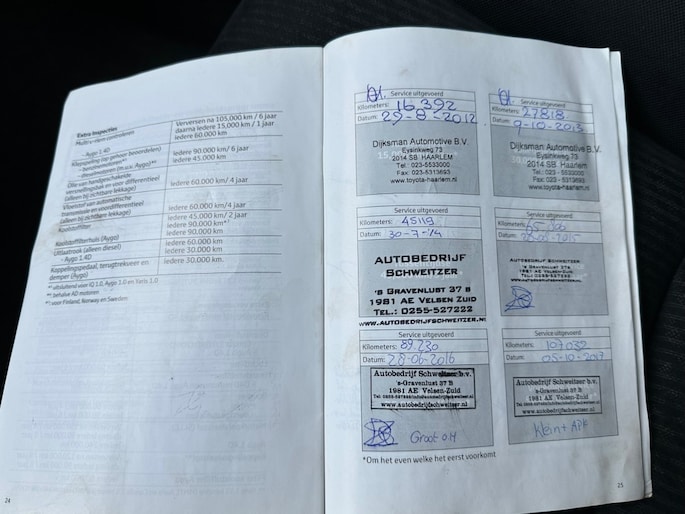 Extra Inspecties
Verversen na 105.000 km / 6 jaar
daarna iedere 15.000 km / 1 jaar
iedere 60.000 km
- Aygo 1.4D
Koppeling (op gehoor beoordelen)
iedere 90.000 km / 6 jaar
- benzinemotoren*
iedere 45.000 km
Olie van handgeschakelde
versnellingsbak en voor differentieel
(alleen bij zichtbare lekkage)
iedere 60.000 km/4 jaar
Vloeistof van automatische
transmissie en voordifferentieel
(alleen bij zichtbare lekkage)
iedere 60.000 km/4 jaar
Koolstoffilter
iedere 45.000 km/ 2 jaar
iedere 90.000 km*¹
Koolstoffilterhuis (Aygo)
iedere 90.000 km
Uitlaatrook (alleen diesel)
iedere 60.000 km
- Aygo 1.4D
iedere 30.000 km
Koppelingspedaal, terugtrekveer en
demper (Aygo)
iedere 30.000 km.
* uitsluitend voor IQ 1.0, Aygo 1.0 en Yaris 1.0
** behalve AD motoren
*¹ voor Finland, Norway en Sweden
24
Service uitgevoerd
Kilometers: 16,392
Datum: 29-8-2012
Dijksman Automotive B.V.
Eysinkweg 73
2014 SB HAARLEM
Tel.: 023-5533000
Fax: 023-5313693
www.toyota-haarlem.nl
Service uitgevoerd
Kilometers: 27818
Datum: 9-10-2013
Dijksman Automotive B.V.
Eysinkweg 73
2014 SB HAARLEM
Tel.: 023-5533000
Fax: 023-5313693
www.toyota-haarlem.nl
Service uitgevoerd
Kilometers: 45119
Datum: 30-7-14
AUTOBEDRIJF
SCHWEITZER
'S GRAVENLUST 37 B
1981 AE VELSEN ZUID
TEL.: 0255-527222
WWW.AUTOBEDRIJFSCHWEITZER.NL
Service uitgevoerd
Kilometers:
Datum:
AUTOBEDRIJF
SCHWEITZER
Service uitgevoerd
Kilometers: 89.230
Datum: 28-06-2016
Autobedrijf Schweitzer b.v.
's-Gravenlust 37 B
1981 AE Velsen-Zuid
www.autobedrijfschweitzer.nl
Groot OH
Service uitgevoerd
Kilometers: 107032
Datum: 05-10-2017
Autobedrijf Schweitzer b.v.
's-Gravenlust 37 B
1981 AE Velsen-Zuid
www.autobedrijfschweitzer.nl
Klein + APK
*Om het even welke het eerst voorkomt
25